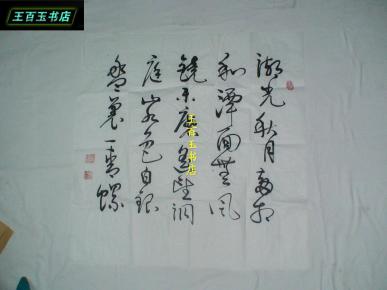 王百玉书店
湖光秋月両相
和潭面無风
鏡未磨遥望洞
庭山水色白銀
盤裏一青螺
王百玉书店